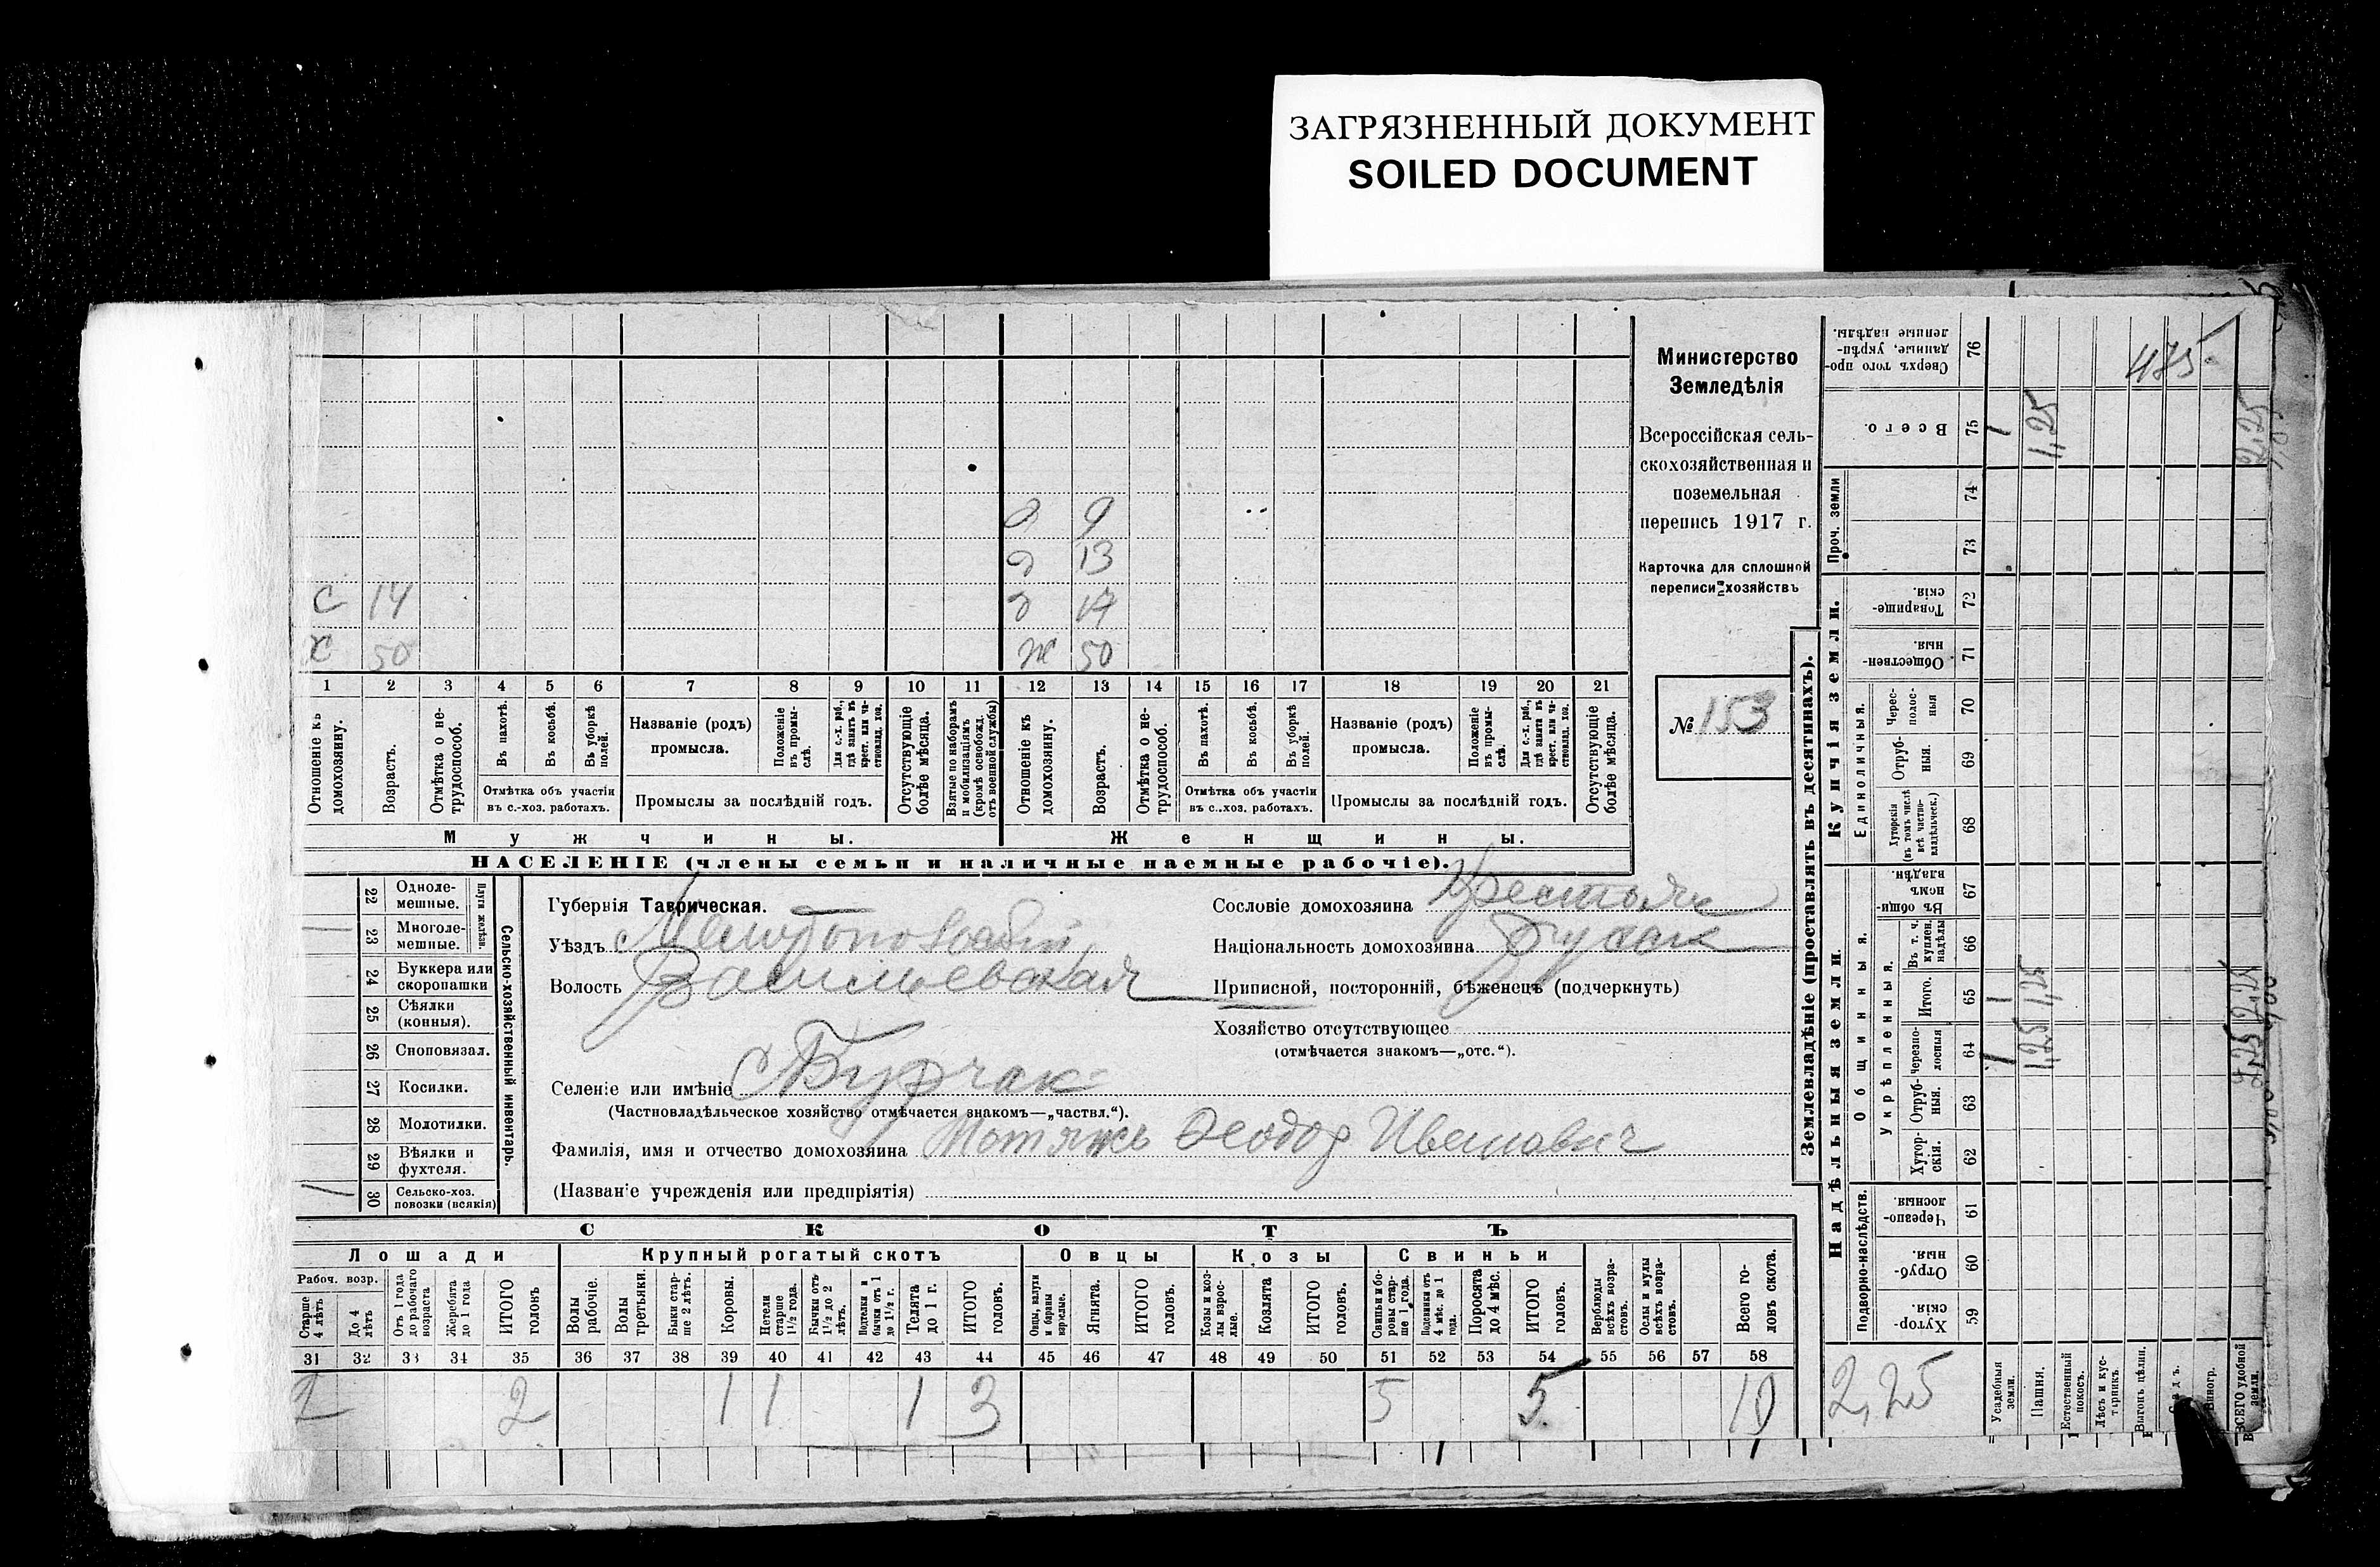 ЗАГРЯЗНЕННЫЙ ДОКУМЕНТ
SOILED DOCUMENT
Министерство
Земледѣлія
Всероссійская сель-
скохозяйственная и
поземельная
перепись 1917 г.
Карточка для сплошной
переписи хозяйствъ
№ 153
д 9
д 13
с 14 д 17
х 50 ж 50
1 2 3 4 5 6 7 8 9 10 11 12 13 14 15 16 17 18 19 20 21
Отношеніе къ домохозяину.
Возрастъ.
Отмѣтка о не-трудоспособ.
Въ пахотѣ.
Въ косьбѣ.
Въ уборкѣ полей.
Названіе (родъ) промысла.
Положеніе въ промы-слѣ.
Для с.-х. раб., гдѣ занятъ въ крест. или ча-стновлад. хоз.
Отмѣтка объ участіи въ с.-хоз. работахъ.
Промыслы за послѣдній годъ.
Отсутствующіе болѣе мѣсяца.
Взятые по наборамъ и мобилизаціямъ (кромѣ освобожд. отъ военной службы)
Отношеніе къ домохозяину.
Возрастъ.
Отмѣтка о не-трудоспособ.
Въ пахотѣ.
Въ косьбѣ.
Въ уборкѣ полей.
Названіе (родъ) промысла.
Положеніе въ промы-слѣ.
Для с.-х. раб., гдѣ занятъ въ крест. или ча-стновлад. хоз.
Отмѣтка объ участіи въ с.-хоз. работахъ.
Промыслы за послѣдній годъ.
Отсутствующіе болѣе мѣсяца.
Мужчины. Женщины.
НАСЕЛЕНІЕ (члены семьи и наличные наемные рабочіе).
22 Одноле-мешные.
23 Многоле-мешные.
Плуги желѣзн.
24 Буккера или скоропашки
25 Сѣялки (конныя).
26 Сноповязал.
27 Косилки.
28 Молотилки.
29 Вѣялки и фухтеля.
30 Сельско-хоз. повозки (всякія)
Сельско-хозяйственный инвентарь.
Губернія Таврическая.
Уѣздъ Мелитопольскій
Волость Васильевская
Селеніе или имѣніе с Бурчак
(Частновладѣльческое хозяйство отмѣчается знакомъ—„частвл.“).
Фамилія, имя и отчество домохозяина Ѳеодор Иванович
(Названіе учрежденія или предпріятія)
Сословіе домохозяина
Національность домохозяина
Приписной, посторонній, бѣженецъ (подчеркнуть)
Хозяйство отсутствующее
(отмѣчается знакомъ—„отс.“).
СКОТЪ
Лошади Крупный рогатый скотъ Овцы Козы Свиньи
Рабоч. возр.
Старше 4 лѣтъ
До 4 лѣтъ
Отъ 1 года до рабочаго возраста
Жеребята до 1 года
ИТОГО головъ
Волы рабочіе.
Волы третьяки.
Быки стар-ше 2 лѣтъ.
Коровы.
Нетели старше 1½ года.
Бычки отъ 1½ до 2 лѣтъ.
Подтелки и бычки отъ 1 до 1½ г.
Телята до 1 г.
ИТОГО головъ.
Овцы, валухи и бараны взрослые.
Ягнята.
ИТОГО головъ.
Козы и коз-лы взрос-лые.
Козлята
ИТОГО головъ.
Свиньи и бо-ровы стар-ше 1 года.
Подсвинки отъ 4 мѣс. до 1 года.
Поросята до 4 мѣс.
ИТОГО головъ.
Верблюды всѣхъ возра-стовъ.
Ослы и мулы всѣхъ возра-стовъ.
Всего го-ловъ скота.
31 32 33 34 35 36 37 38 39 40 41 42 43 44 45 46 47 48 49 50 51 52 53 54 55 56 57 58
2 2 1 1 1 3 5 5 10
Землевладѣніе (проставлять въ десятинахъ).
Надѣльныя земли. Купчія земли.
Подворно-наслѣдств.
Общинныя.
Укрѣпленныя.
Единоличныя.
Проч. земли
Сверхъ того про-данные, укрѣп-ленные надѣлы. 76
Всего. 75
74
73
Товарище-скія 72
Обществен-ныя 71
Черес-полос-ныя 70
Отруб-ныя. 69
Хуторскія (въ томъ числѣ всѣ частно-владѣльческ.) 68
Въ общин-номъ владѣн. 67
Въ т. ч. куплен. надѣлы 66
Итого. 65
Черезпо-лосныя 64
Отруб-ныя. 63
Хутор-скія. 62
Черезпо-лосныя 61
Отруб-ныя. 60
Хутор-скія. 59
Усадебныя земли.
Пашня.
Естественный покосъ.
Лѣсъ и кус-тарникъ.
Выгонъ, цѣлин.
Виногр.
ВСЕГО удобной земли.
475
1 1,25 2,25
1 1,25
1 1,25
2,25